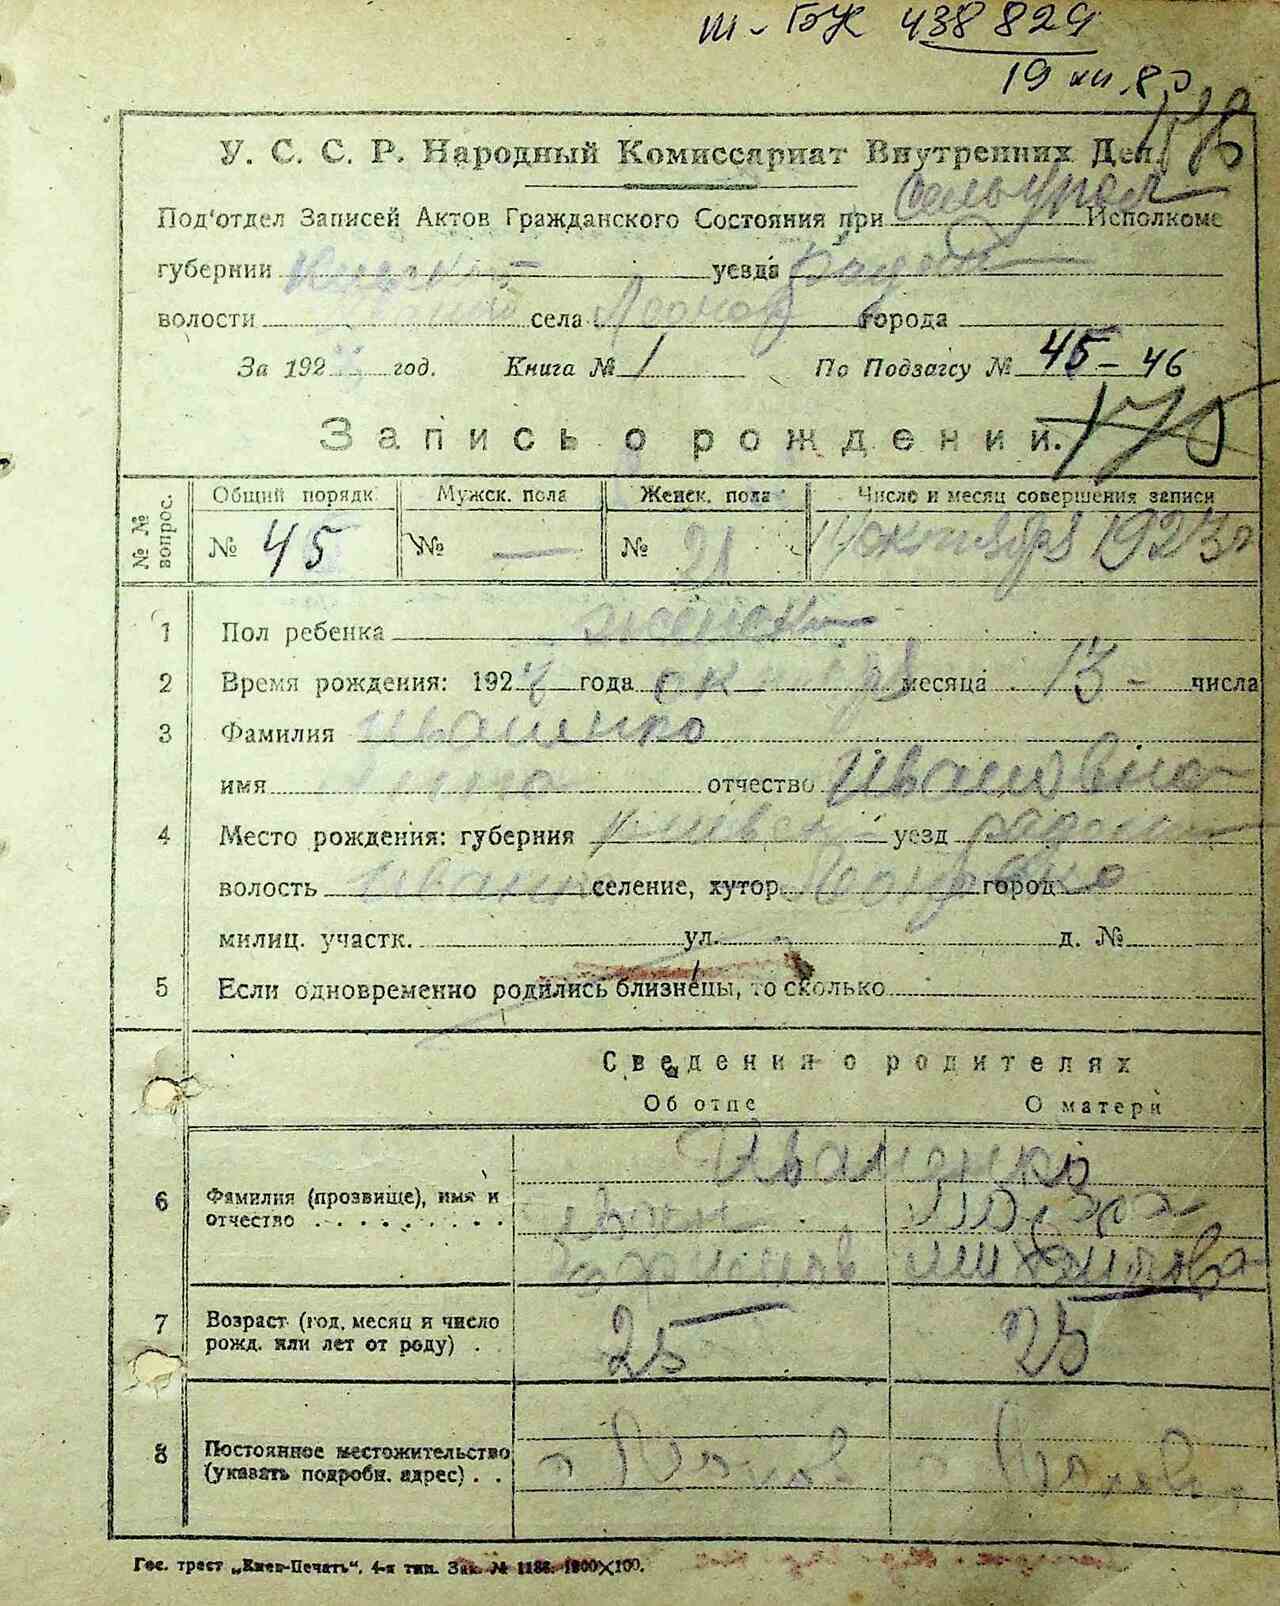 III-БК 438829
19 XII.80
У. С. С. Р. Народный Комиссариат Внутренних Дел.
Под'отдел Записей Актов Гражданского Состояния при Исполкоме
губернии Киевской уезда
волости села города
За 1923 год. Книга № 1 По Подзагсу № 45-46
175
Запись о рождении.
№ № вопрос. Общий порядк. Мужск. пола Женск. пола Число и месяц совершения записи
№ 45 № — № 21 14 октября 1923 г
1 Пол ребенка женск
2 Время рождения: 1923 года октября месяца 13 числа
3 Фамилия Иваненко
имя отчество Ивановна
4 Место рождения: губерния Киевск уезд Радом
волость Иванк селение, хутор город
милиц. участк. ул. д. №
5 Если одновременно родились близнецы, то сколько
Сведения о родителях
Об отце О матери
Иваненко
6 Фамилия (прозвище), имя и Иван
отчество
7 Возраст (год, месяц и число
рожд. или лет от роду) 25 23
8 Постоянное местожительство
(указать подробн. адрес)
Гос. трест „Киев-Печать". 4-я тип. Зак. № 1188. 1800×100.